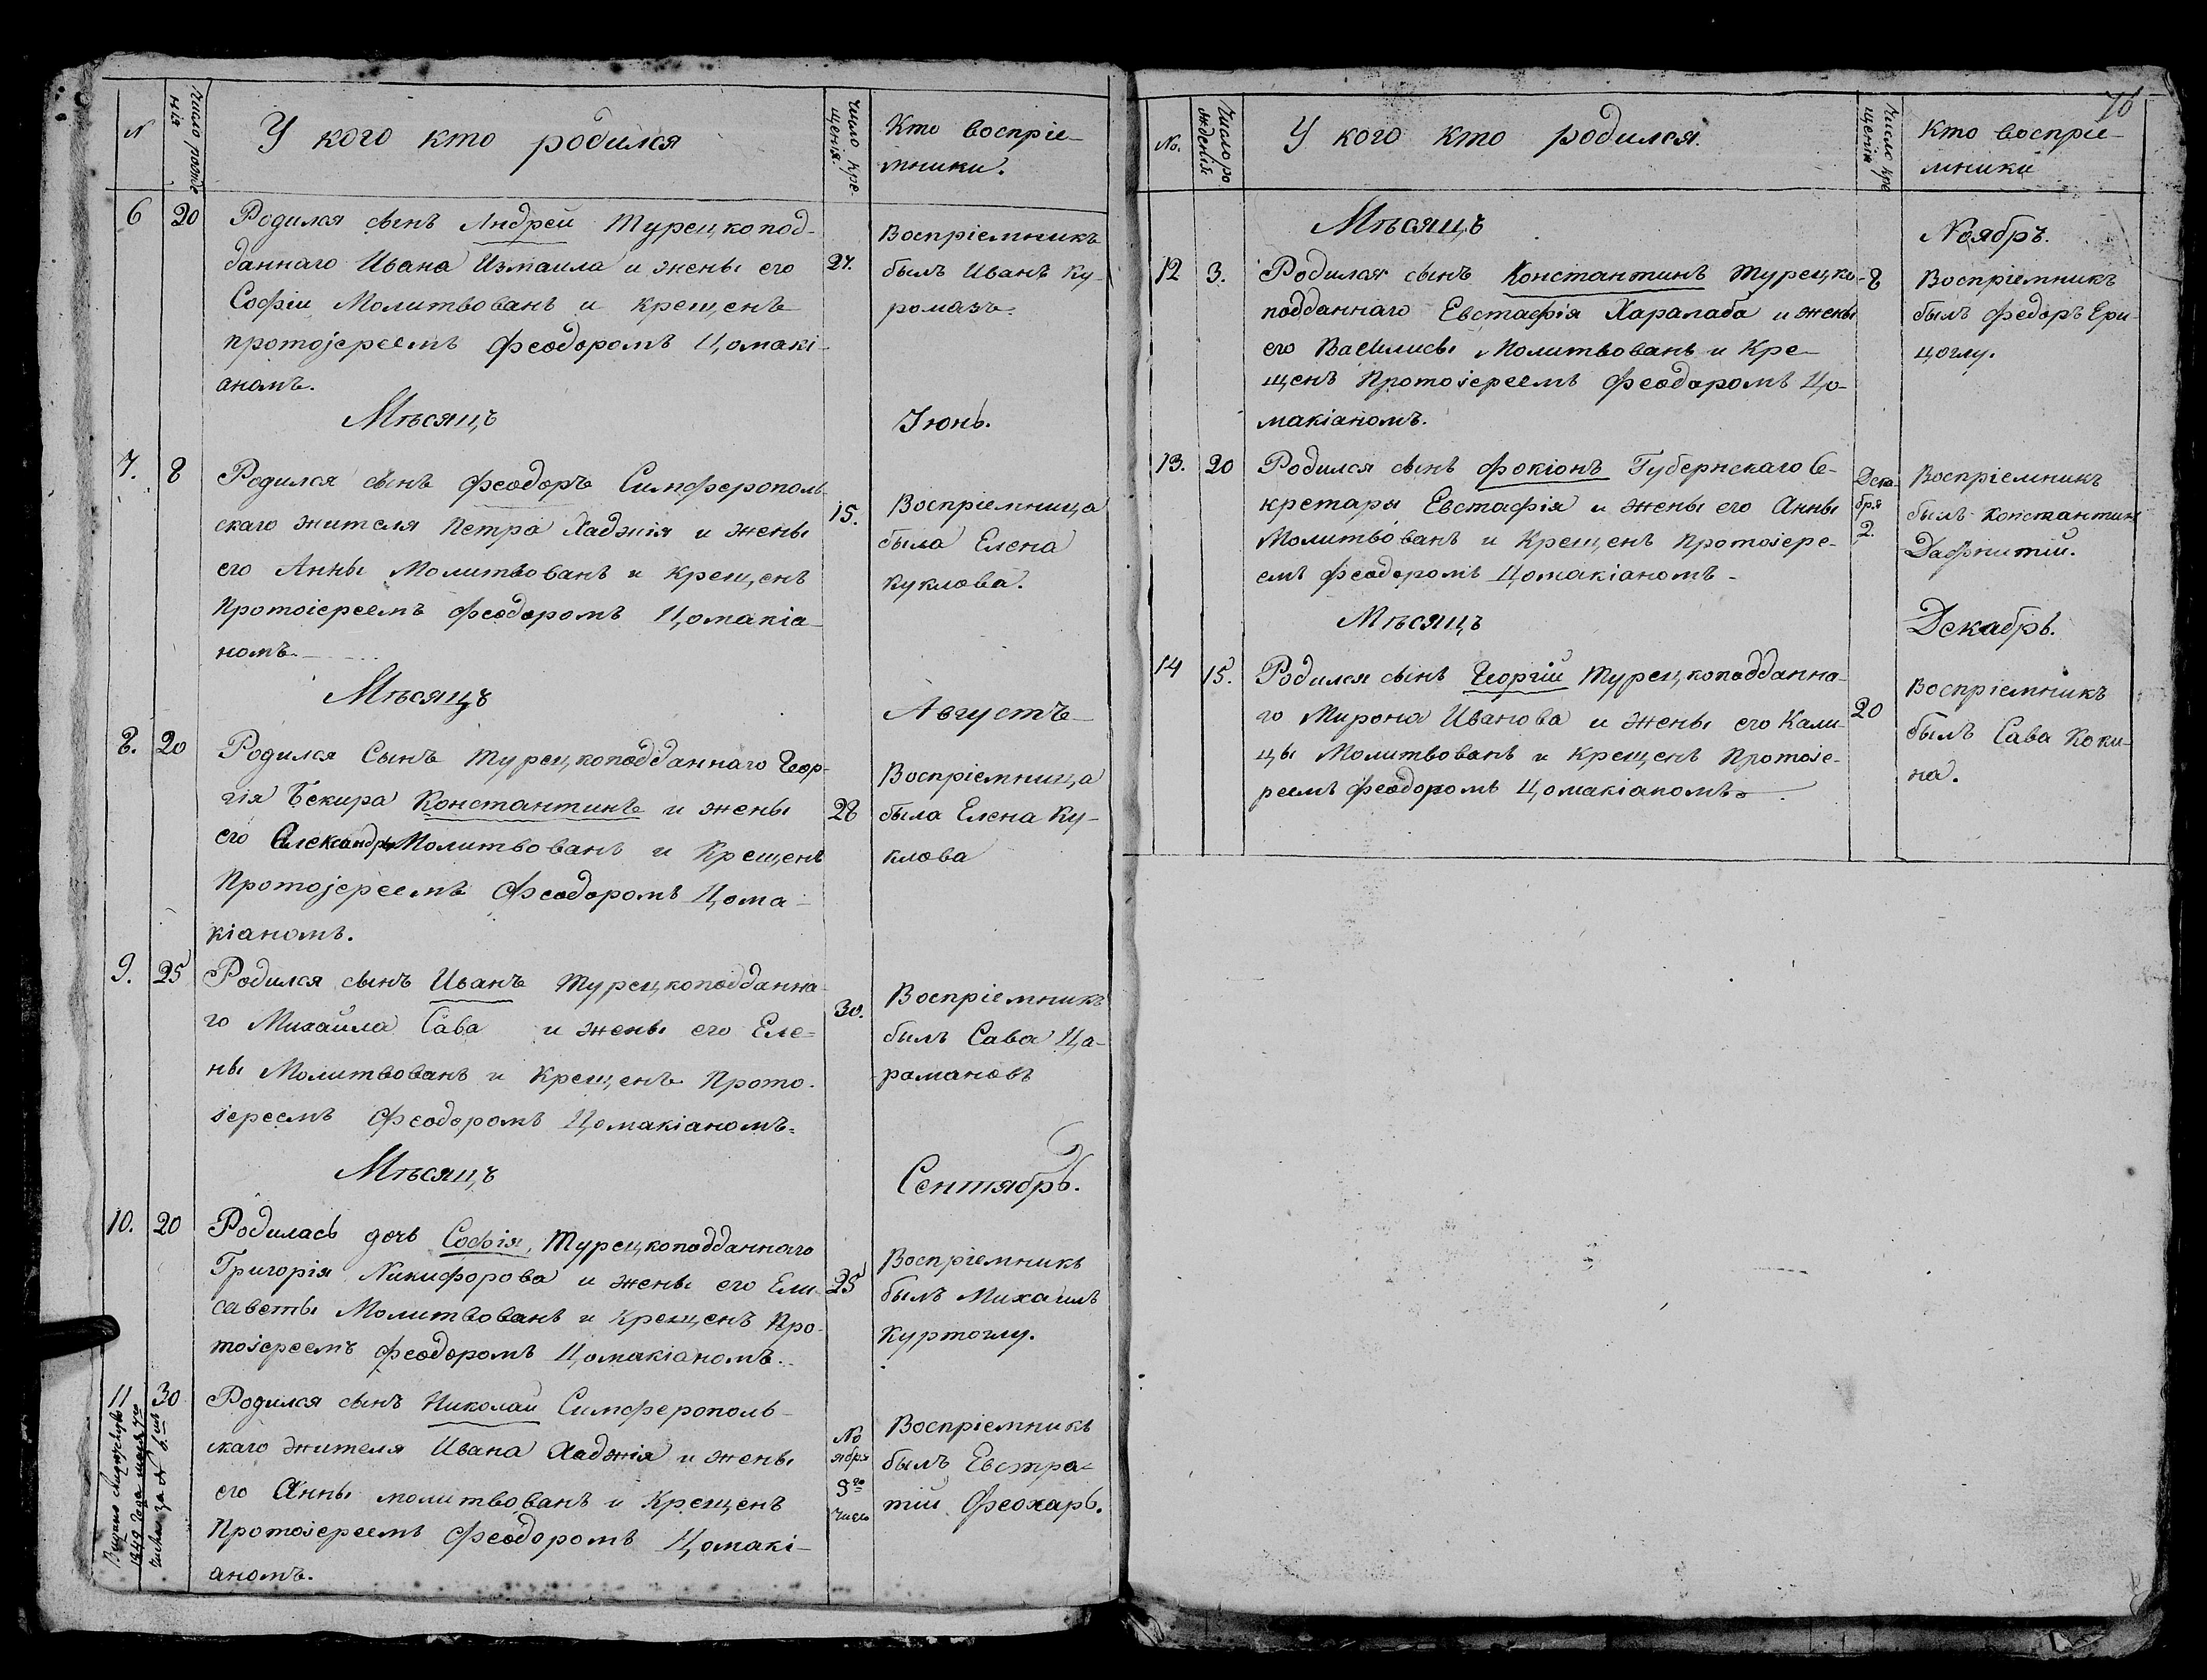 N
Число рожде
нія
У кого кто родился
Число кре-
щенія.
Кто воспріе-
мники.
6
20
Родился сынъ Андрей Турецкопод-
даннаго Ивана Измаила и жены его
Софіи Молитвованъ и крещенъ
протоіереемъ Феодоромъ Цомакі-
аномъ.
27.
Воспріемникъ
былъ Иванъ Ку-
ромазъ.
Мѣсяцъ
Іюнь.
7.
8
Родился сынъ Феодоръ Симферополь-
скаго жителя Петра Хаджія и жены
его Анны Молитвованъ и крещенъ
Протоіереемъ Феодоромъ Цомакіа-
номъ.
15.
Воспріемница
была Елена
Куклова.
Мѣсяцъ
Августъ
8.
20
Родился Сынъ Турецкоподданнаго Геор-
гія Бекира Константинъ и жены
его Александры Молитвованъ и Крещенъ
Протоіереемъ Феодоромъ Цома-
кіаномъ.
28
Воспріемница
была Елена Ку-
клова
9.
25
Родился сынъ Иванъ Турецкоподданна-
го Михаила Сава и жены его Еле-
ны Молитвованъ и Крещенъ Прото-
іереемъ Феодоромъ Цомакіаномъ.
30.
Воспріемникъ
былъ Сава Ца-
романовъ
Мѣсяцъ
Сентябрь.
10.
20
Родилась дочь Софія, Турецкоподданнаго
Григорія Никифорова и жены его Ели-
саветы Молитвованъ и Крещенъ Про-
тоіереемъ Феодоромъ Цомакіаномъ.
25
Воспріемникъ
былъ Михаилъ
Куртоглу.
11
30
Родился сынъ Николай Симферополь-
скаго жителя Ивана Хаджія и жены
его Анны молитвованъ и Крещенъ
Протоіереемъ Феодоромъ Цомакі-
аномъ.
Но
ября
9го
числа
Воспріемникъ
былъ Евстра-
тій Феохарь.
1849 года
числа за №
70
No.
Число ро
жденія
У кого кто родился.
Число кре
щенія
Кто воспріе-
мники
Мѣсяцъ
Ноябрь.
12
3.
Родился сынъ Константинъ Турецко-
подданнаго Евстафія Харалаба и жены
его Василисы Молитвованъ и Кре-
щенъ Протоіереемъ Феодоромъ Цо-
макіаномъ.
8
Воспріемникъ
былъ Федоръ Ери-
цоглу.
13.
20
Родился сынъ Фокіонъ Губернскаго Се-
кретаря Евстафія и жены его Анны
Молитвованъ и Крещенъ Протоіере-
емъ Феодоромъ Цомакіаномъ
Дека-
бря
2.
Воспріемникъ
былъ Константинъ
Дафнитій.
Мѣсяцъ
Декабрь.
14
15.
Родился сынъ Георгій Турецкоподданна-
го Мирона Иванова и жены его Кали-
цы Молитвованъ и крещенъ Протоіе-
реемъ Феодоромъ Цомакіаномъ.
20
Воспріемникъ
былъ Сава Коки-
на.